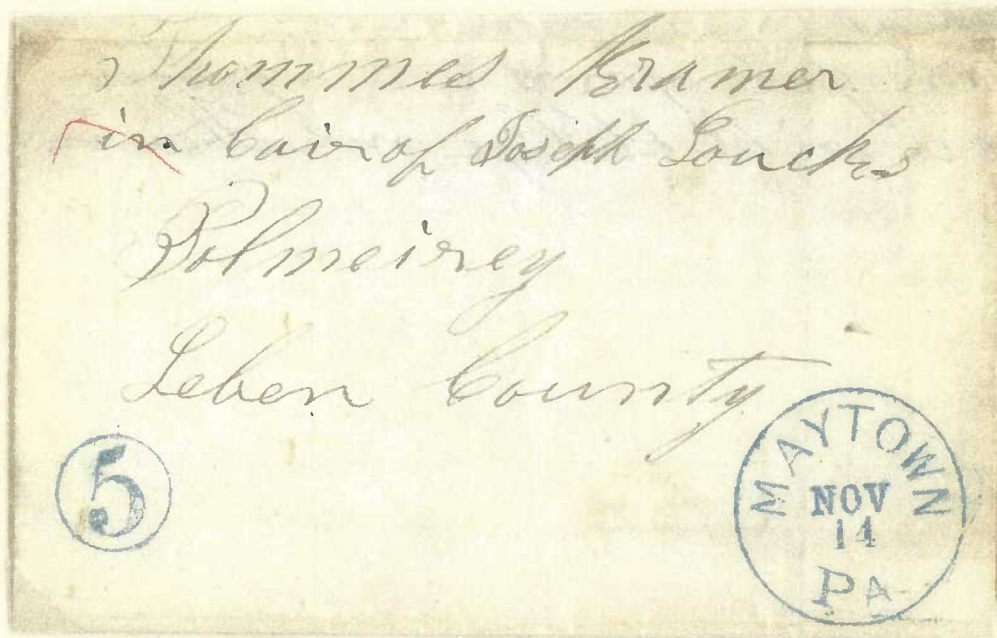 Thommes Kramer
in Cair of Joseph Loucks
Polmeirey
Leben County
5
MAYTOWN
NOV
14
PA